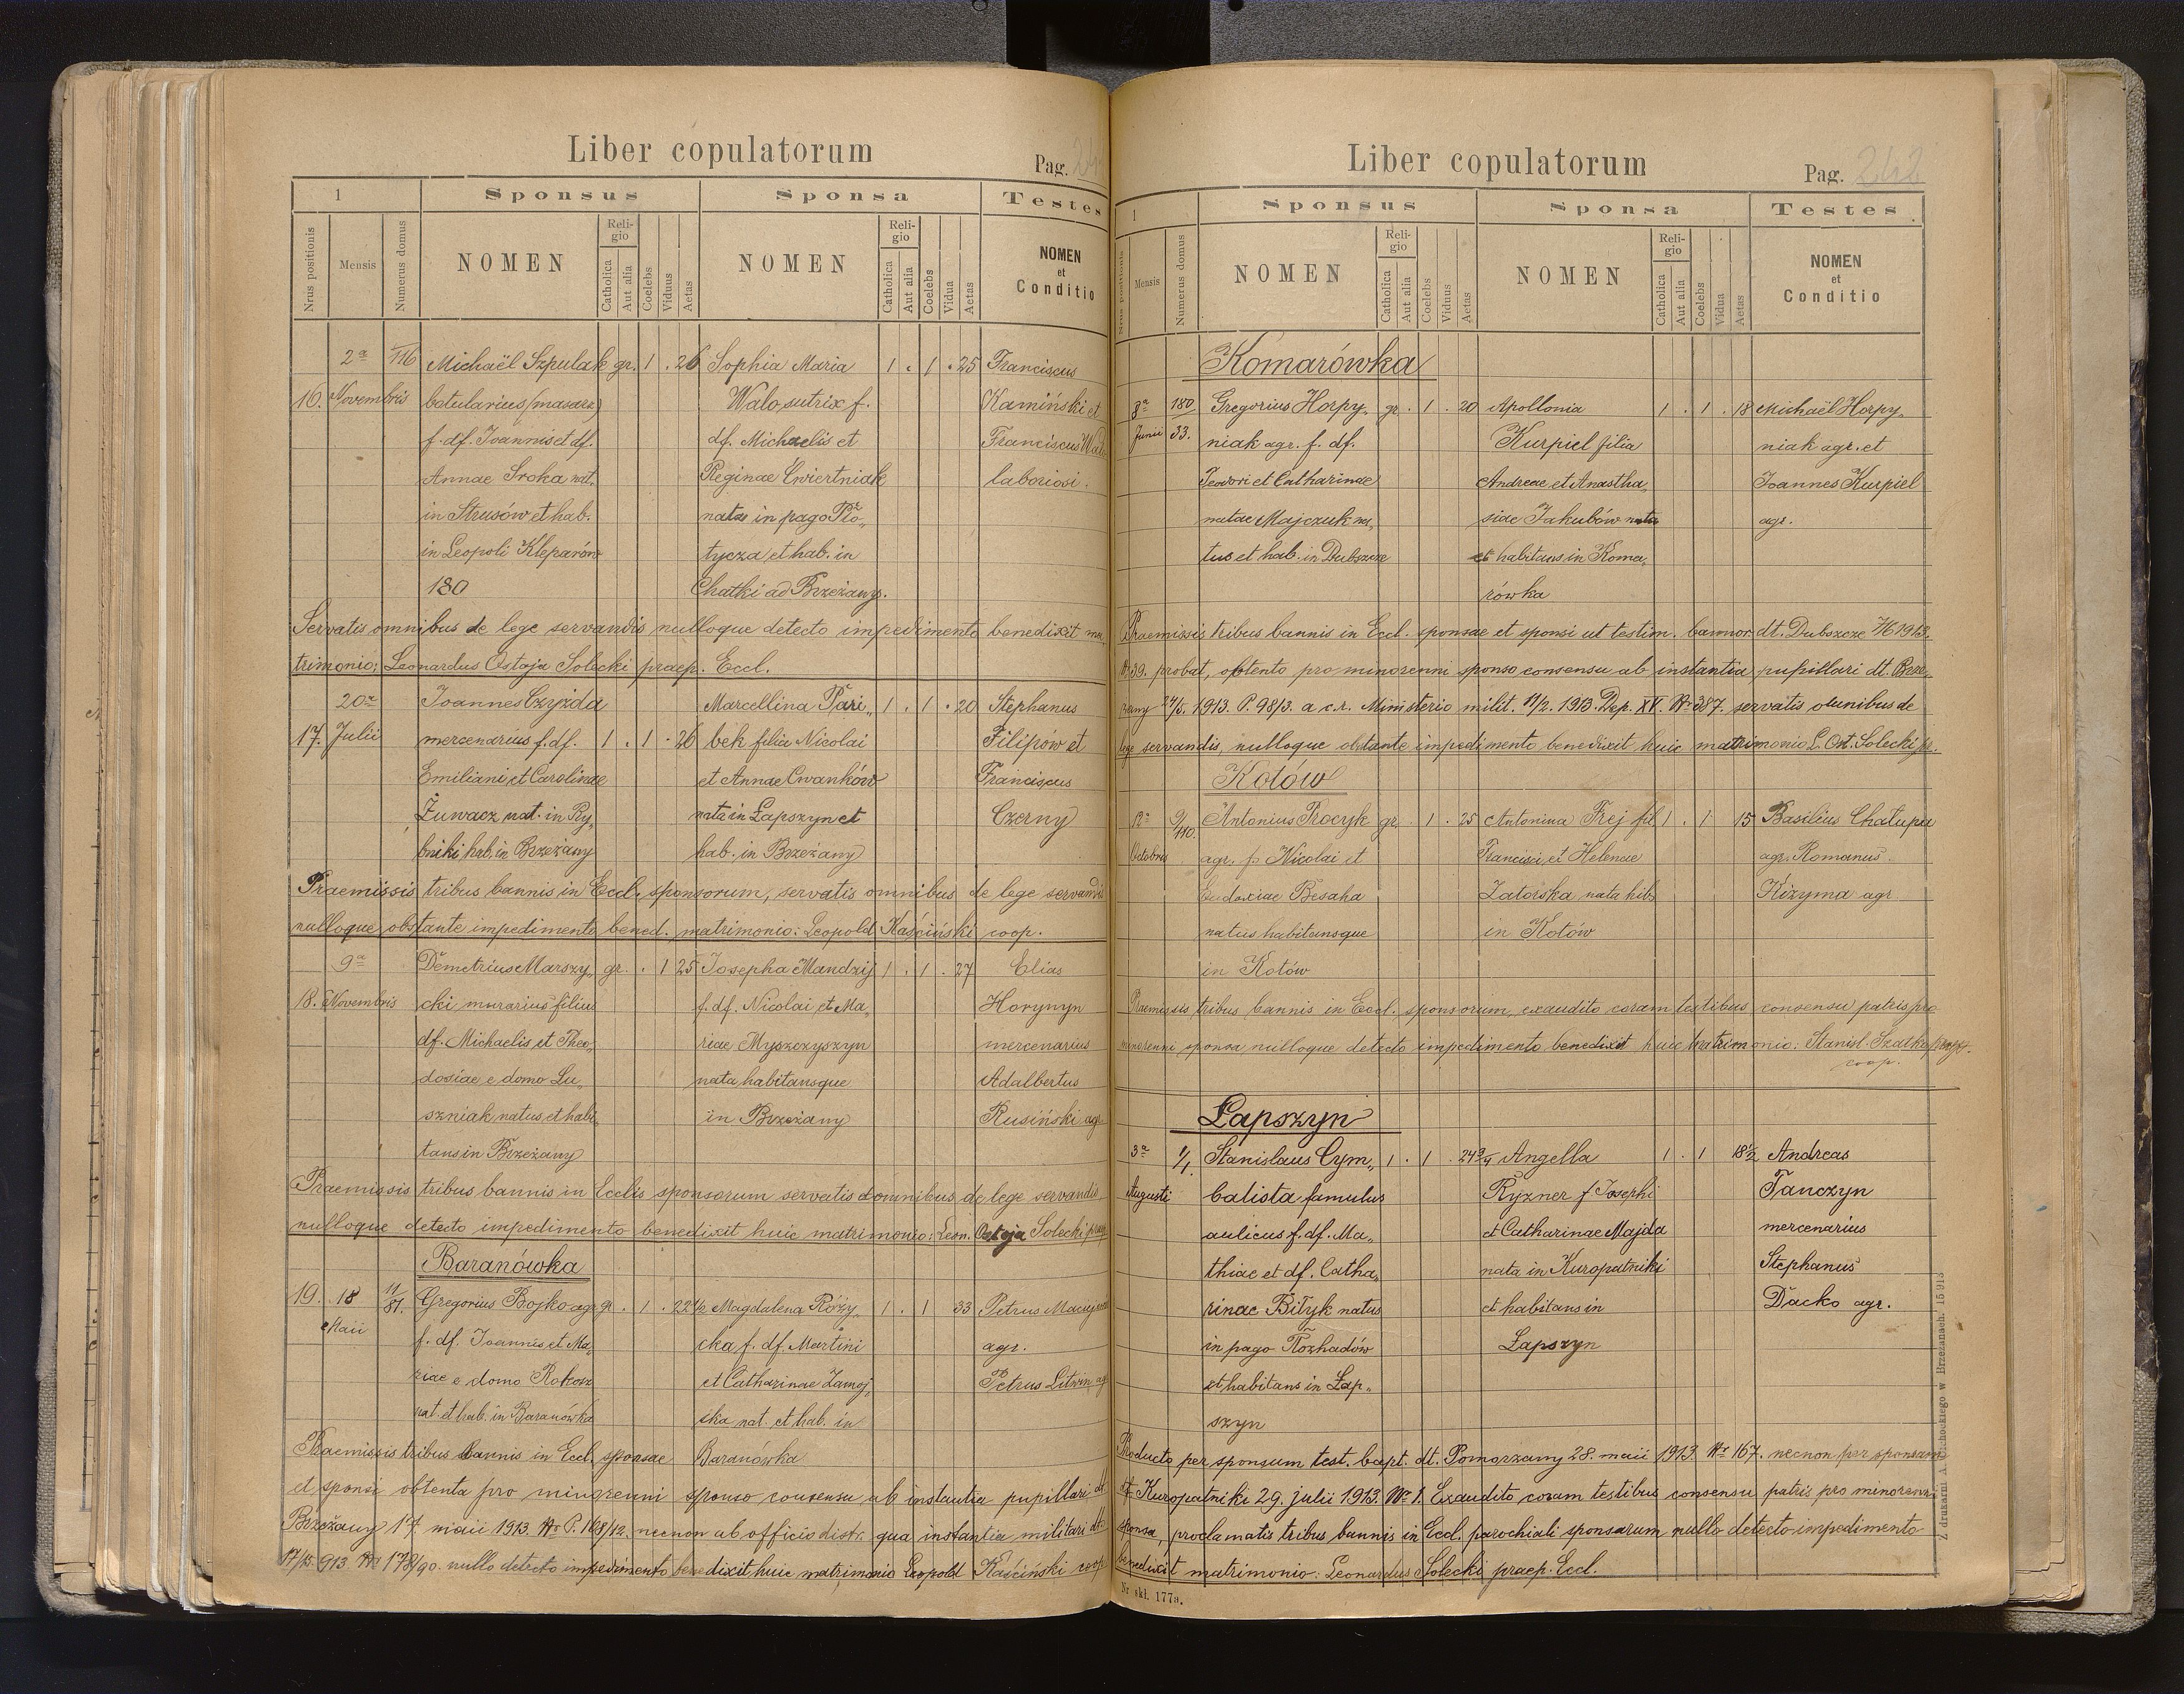 Liber copulatorum
Pag.
1
Sponsus
Sponsa
Testes
Nrus positionis
Mensis
Numerus domus
NOMEN
Religio
Catholica
Aut alia
Coelebs
Viduus
Aetas
NOMEN
Religio
Catholica
Aut alia
Coelebs
Vidua
Aetas
NOMEN
et
Conditio
2a 116 Michaël Szpulak gr. 1 . 26 Sophia Maria 1 . 1 . 25 Franciscus
16. Novembris Walo sutrix f. Kamiński et
f. df. Joannis et df. df. Michaelis et Franciscus
Annae Sroka nat. Reginae Ćwiertniak laboriosi.
in Strusów et hab. nata in pago Ro„
in Leopoli Kleparów tycza et hab. in
180 Chatki ad Brzeżany.
Servatis omnibus de lege servandis nulloque detecto impedimento benedixit ma
trimonio: Leonardus Ostoja Solecki praep. Eccl.
20a Joannes Czyżda Marcellina Pari„ 1 . 1 . 20 Stephanus
17. Julii mercenarius f. df. 1 . 1 . 26 bek filia Nicolai Filipów et
Emiliani et Carolinae et Annae Cwanków Franciscus
Żuwacz nat. in Ry„ nata in Łapszyn et Czerny
bniki hab. in Brzeżany hab. in Brzeżany
Praemissis tribus bannis in Eccl. sponsorum, servatis omnibus de lege servandis
nulloque obstante impedimento bened. matrimonio: Leopold Kaściński coop.
9a Demetrius Marszy„ gr. . 1 25 Josepha Mandzij 1 . 1 . 27 Elias
18. Novembris cki murarius filius f. df. Nicolai et Ma„ Horynyn
df. Michaelis et Theo„ riae Myszczyszyn mercenarius
dosiae e domo Lu„ nata habitansque Adalbertus
szniak natus et habi„ in Brzeżany Rusiński agr
tans in Brzeżany
Praemissis tribus bannis in Ecclis sponsorum servatis omnibus de lege servandis
nulloque detecto impedimento benedixit huic matrimonio: Leon. Ostoja Solecki praep
Baranówka
19. 18 11/81. Gregorius Bojko agr. gr. . 1 . 22 1/2 Magdalena Róży„ 1 . 1 33 Petrus
Maii f. df. Joannis et Ma„ cka f. df. Martini agr.
riae e domo Rokosz et Catharinae Zamoj„ Petrus Litwin ag
nat. et hab. in Baranówka ska nat. et hab. in
Praemissis tribus bannis in Eccl. sponsae Baranówka
et sponsi obtenta pro minorenni sponso consensu ab instantia pupillari dt
Brzeżany 17 maii 1913 Nr P. 168/12. necnon ab officio distr. qua instantia militari dt
17/5 913 Nr 178/90. nullo detecto impedimento benedixit huic matrimonio Leopold Kaściński coop
Liber copulatorum
Pag. 242
1
Sponsus
Sponsa
Testes
Nrus positionis
Mensis
Numerus domus
NOMEN
Religio
Catholica
Aut alia
Coelebs
Viduus
Aetas
NOMEN
Religio
Catholica
Aut alia
Coelebs
Vidua
Aetas
NOMEN
et
Conditio
Komarówka
8a 180 Gregorius Horpy„ gr. . 1 . 20 Apollonia 1 . 1 . 18 Michaël Horpy„
Junii 33. niak agr. f. df. Kurpiel filia niak agr. et
Teodori et Catharinae Andreae et Anastha„ Joannes Kurpiel
natae Majczuk na„ siae Jakubów nata agr.
tus et hab. in Dubszcze et habitans in Koma„
rówka
Praemissis tribus bannis in Eccl. sponsae et sponsi ut testim. bannor. dt. Dubszcze 7/6 1913
N. 39. probat, obtento pro minorenni sponso consensu ab instantia pupillari dt. Brze„
żany 24/5. 1913. P. 98/3. a c.r. Ministerio milit. 11/2. 1913. Dep. XV. Nr 387. servatis omnibus de
lege servandis, nulloque obstante impedimento benedixit huic matrimonio L. Ost. Solecki pr.
Kotów
12a 9/110. Antonius Procyk gr. . 1 . 25 Antonina Frej fil 1 . 1 15 Basilius Chalupa
Octobris agr. f. Nicolai et Francisci et Helenae agr. Romanus
Eudoxiae Besaha Zatorska nata hib. Kiżyma agr
natus habitansque in Kotów
in Kotów
Praemissis tribus bannis in Eccl. sponsorum, exaudito coram testibus consensu patris pro
minorenni sponsa nulloque detecto impedimento benedixit huic matrimonio: Stanisl.
coop.
Łapszyn
3a 1/1. Stanislaus Cym„ 1 . 1 . 24 3/4 Angella 1 . 1 18 1/2 Andreas
Augusti balista famulus Ryzner f Josephi Tanczyn
aulicus f. df. Ma„ et Catharinae Majda mercenarius
thiae et df. Catha„ nata in Kuropatniki Stephanus
rinae Biłyk natus et habitans in Dacko agr.
in pago Rozhadów Łapszyn
et habitans in Łap„
szyn
Producto per sponsum test. bapt. dt. Pomorzany 28. maii 1913 Nr 167. necnon per sponsam
dt Kuropatniki 29. julii 1913. Nr 1. Exaudito coram testibus consensu patris pro minorenni
sponsa, proclamatis tribus bannis in Eccl. parochiali sponsarum nullo detecto impedimento
benedixit matrimonio: Leonardus Solecki praep. Eccl.
Nr skł. 177a.